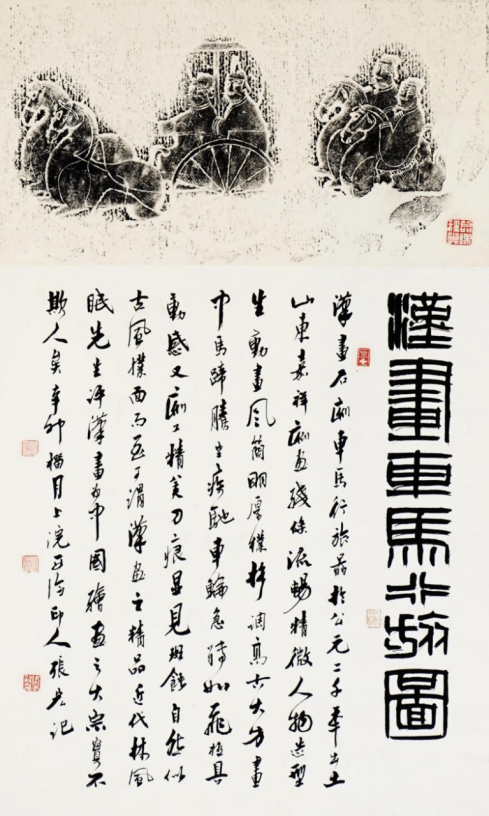 漢畫車馬行旅圖
漢畫石痕車馬行旅圖於公元二千年出土
山東嘉祥痕畫綫條流暢精微人物造型
生動畫風簡明厚樸格調高古大方畫
中馬蹄騰空疾馳車輪急轉如飛極具
動感又痕工精美刀痕顯見斑蝕自然似
古風撲面而至可謂漢畫之精品近代林風
眠先生評漢畫為中國繪畫之大宗實不
欺人矣辛卯 月上浣 印人張 記